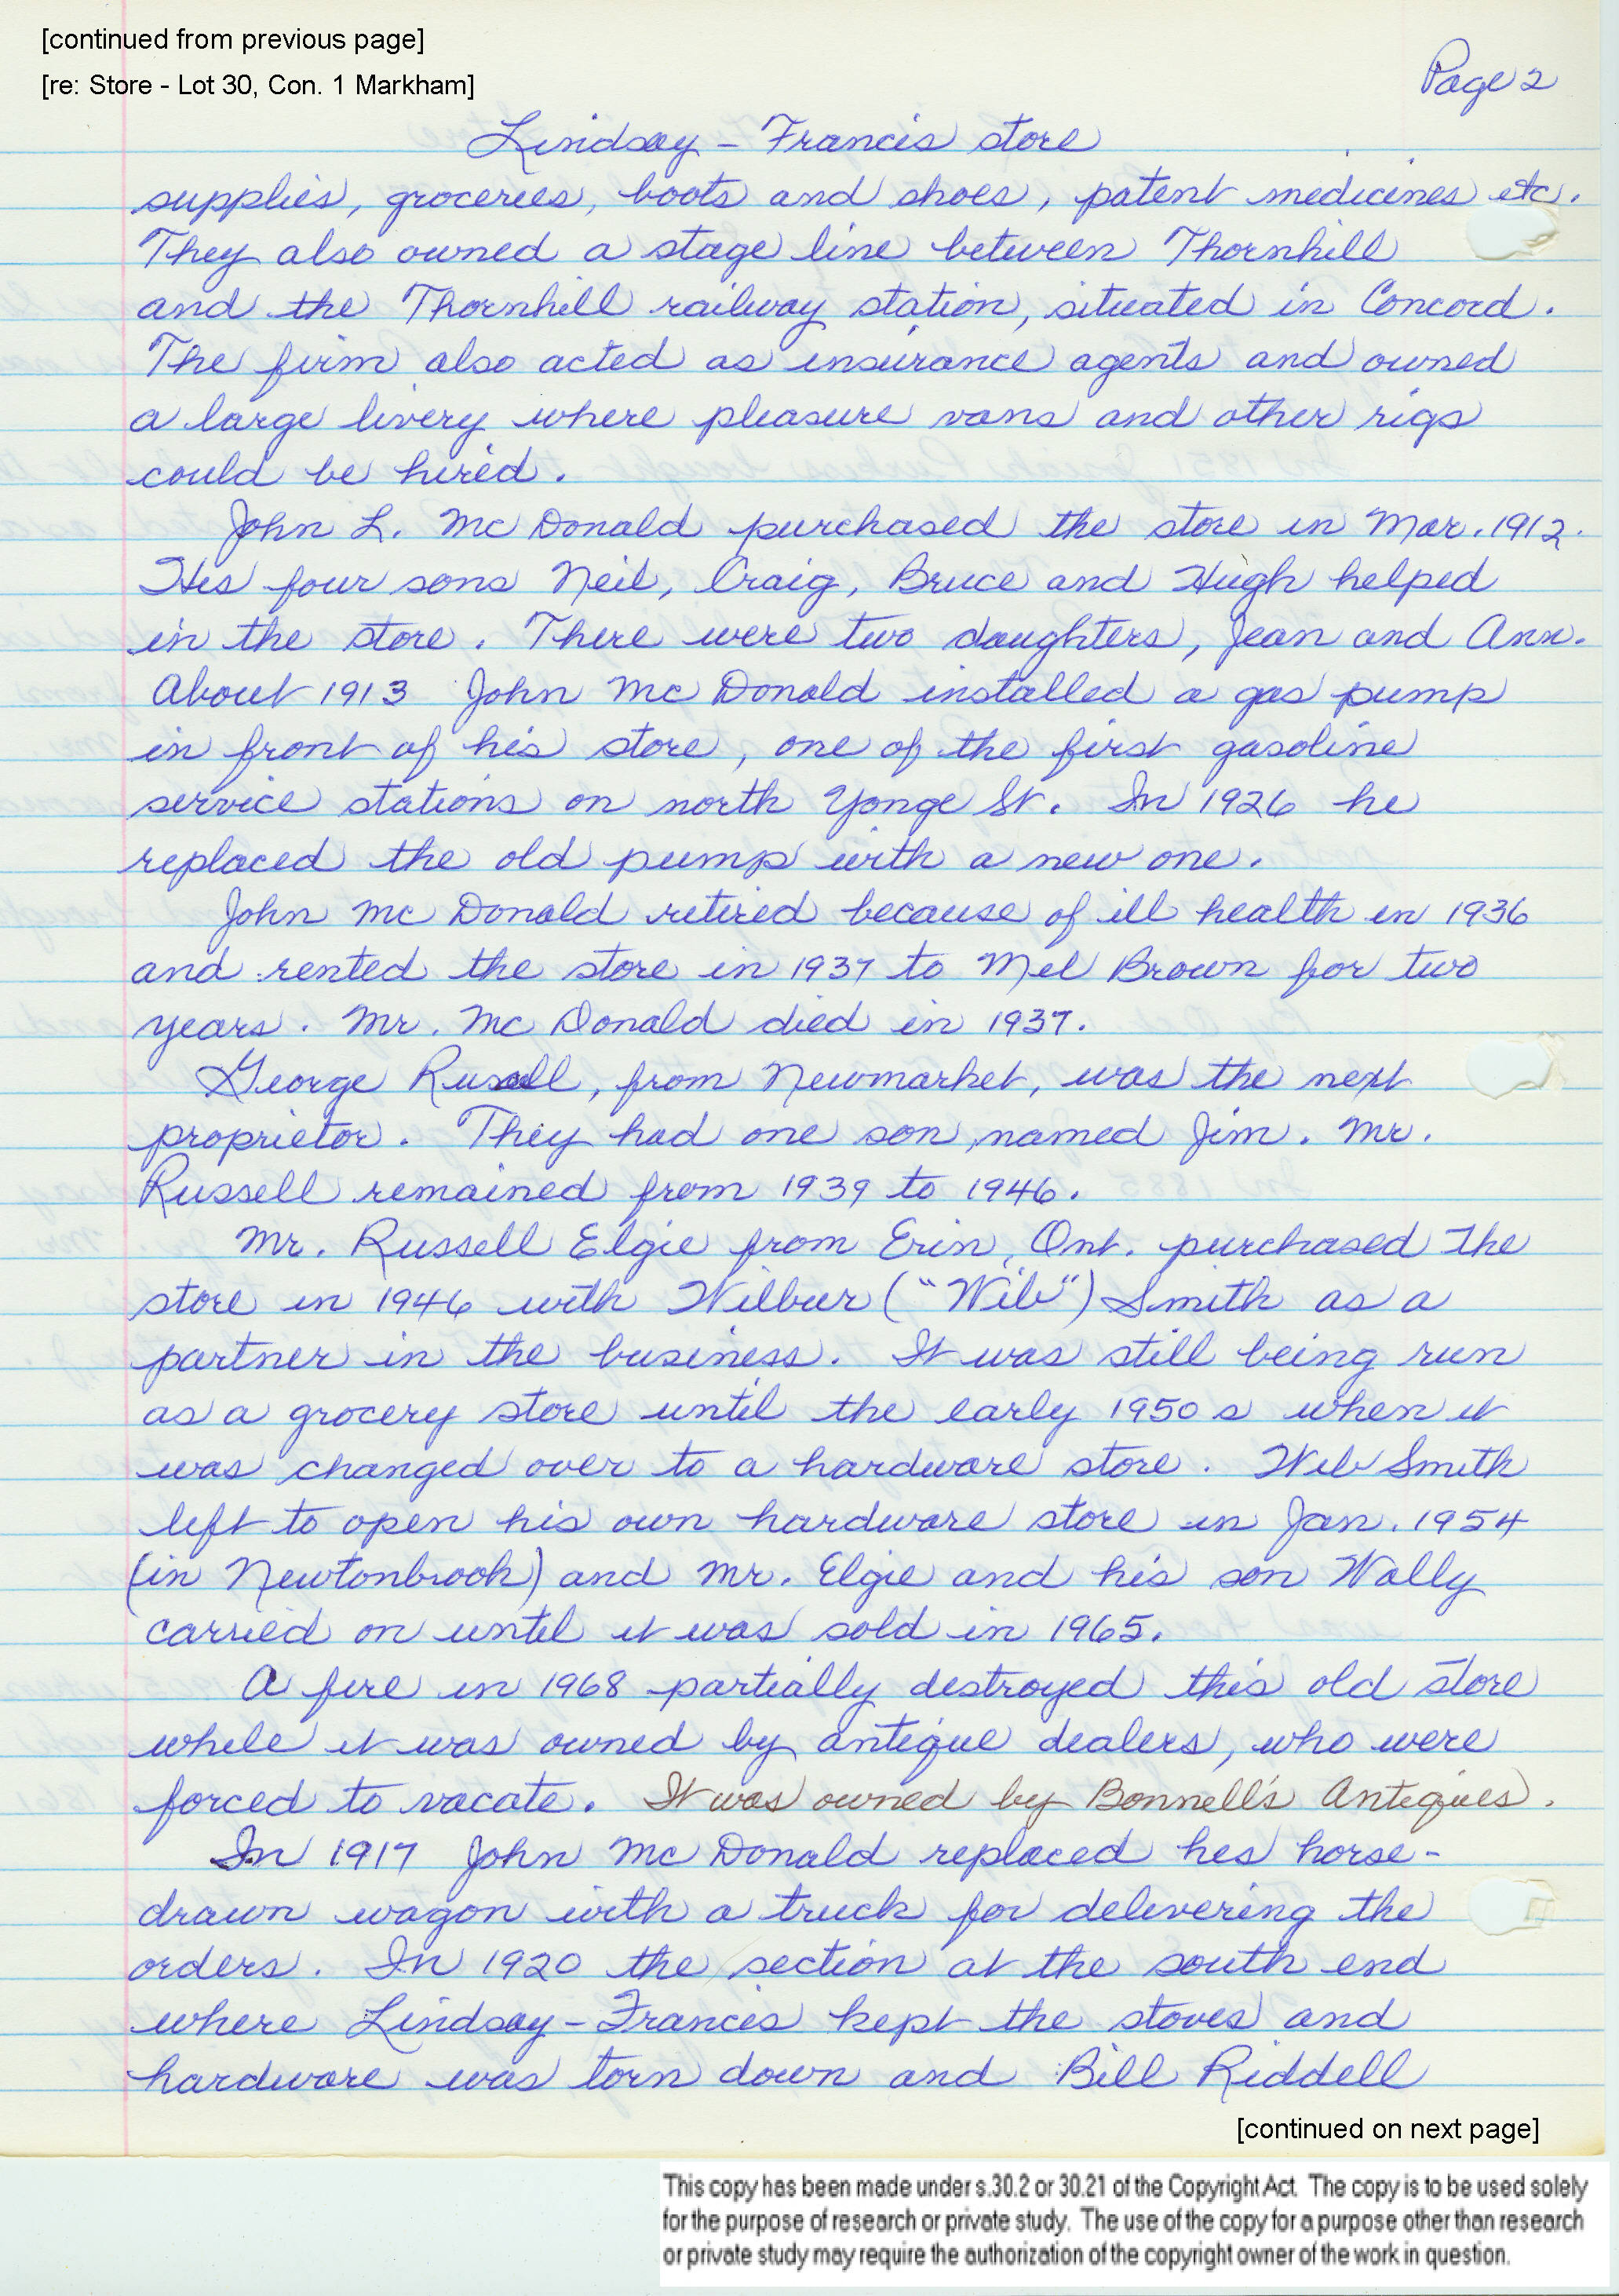 [continued from previous page]
[re: Store - Lot 30, Con. 1 Markham]
Page 2
Lindsay - Francis store
supplies, groceries, boots and shoes, patent medicines etc.
They also owned a stage line between Thornhill
and the Thornhill railway station, situated in Concord.
The firm also acted as insurance agents and owned
a large livery where pleasure vans and other rigs
could be hired.
John L. McDonald purchased the store in Mar. 1912.
His four sons Neil, Craig, Bruce and Hugh helped
in the store. There were two daughters, Jean and Ann.
About 1913 John McDonald installed a gas pump
in front of his store, one of the first gasoline
service stations on north Yonge St. In 1926 he
replaced the old pump with a new one.
John McDonald retired because of ill health in 1936
and rented the store in 1937 to Mel Brown for two
years. Mr. McDonald died in 1937.
George Russell, from Newmarket, was the next
proprietor. They had one son, named Jim. Mr.
Russell remained from 1939 to 1946.
Mr. Russell Elgie from Erin, Ont. purchased the
store in 1946 with Wilbur ("Wib") Smith as a
partner in the business. It was still being run
as a grocery store until the early 1950s when it
was changed over to a hardware store. Wib Smith
left to open his own hardware store in Jan. 1954
(in Newtonbrook) and Mr. Elgie and his son Wally
carried on until it was sold in 1965.
A fire in 1968 partially destroyed this old store
while it was owned by antique dealers, who were
forced to vacate. It was owned by Bonnell's Antiques.
In 1917 John McDonald replaced his horse-
drawn wagon with a truck for delivering the
orders. In 1920 the section at the south end
where Lindsay - Francis kept the stoves and
hardware was torn down and Bill Riddell
[continued on next page]
This copy has been made under s.30.2 or 30.21 of the Copyright Act. The copy is to be used solely
for the purpose of research or private study. The use of the copy for a purpose other than research
or private study may require the authorization of the copyright owner of the work in question.